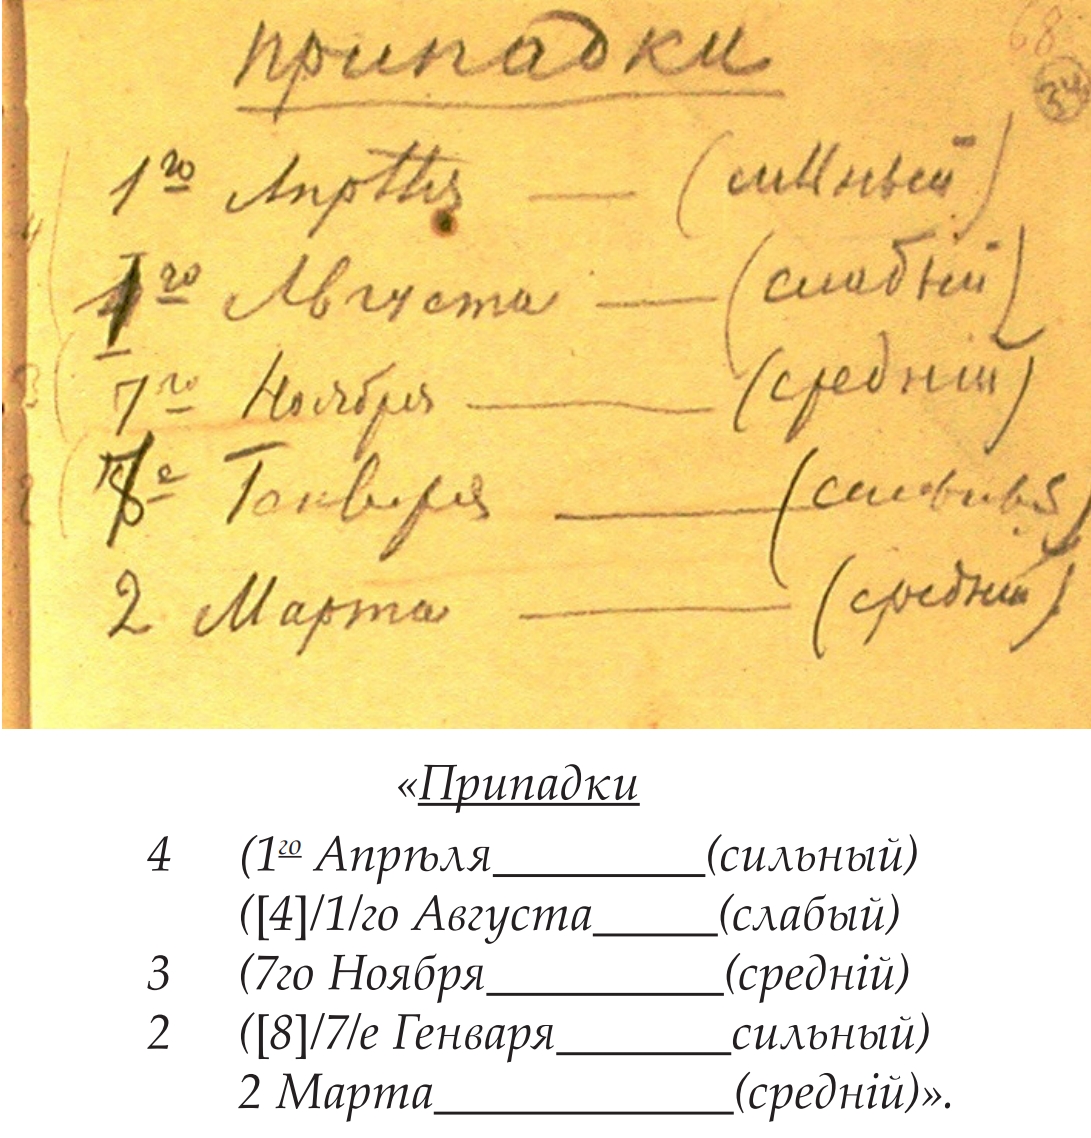 Припадки
68
34
4 1го Апрѣля — (сильный)
1го Августа — (слабый)
3 7го Ноября — (средній)
2 8е Генваря — (сильный)
2 Марта — (средній)
«Припадки
4 (1го Апрѣля_________(сильный)
([4]/1/го Августа_____(слабый)
3 (7го Ноября__________(средній)
2 ([8]/7/е Генваря_______сильный)
2 Марта_____________(средній)».